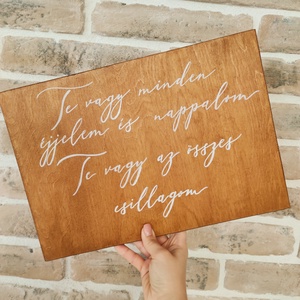 Te vagy minden
éjjelem és nappalom
Te vagy az összes
csillagom